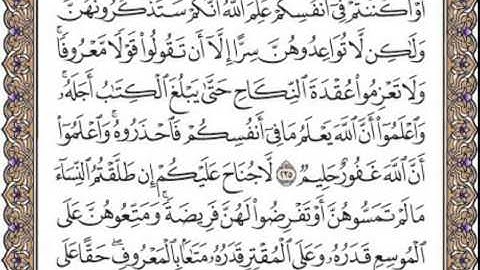 أَوْ أَكْنَنتُمْ فِىٓ أَنفُسِكُمْ عَلِمَ ٱللَّهُ أَنَّكُمْ سَتَذْكُرُونَهُنَّ
وَلَٰكِن لَّا تُوَاعِدُوهُنَّ سِرًّا إِلَّآ أَن تَقُولُوا۟ قَوْلًا مَّعْرُوفًا ۚ
وَلَا تَعْزِمُوا۟ عُقْدَةَ ٱلنِّكَاحِ حَتَّىٰ يَبْلُغَ ٱلْكِتَٰبُ أَجَلَهُۥ ۚ
وَٱعْلَمُوٓا۟ أَنَّ ٱللَّهَ يَعْلَمُ مَا فِىٓ أَنفُسِكُمْ فَٱحْذَرُوهُ ۚ وَٱعْلَمُوٓا۟
أَنَّ ٱللَّهَ غَفُورٌ حَلِيمٌ ٢٣٥ لَّا جُنَاحَ عَلَيْكُمْ إِن طَلَّقْتُمُ ٱلنِّسَآءَ
مَا لَمْ تَمَسُّوهُنَّ أَوْ تَفْرِضُوا۟ لَهُنَّ فَرِيضَةً ۚ وَمَتِّعُوهُنَّ عَلَى
ٱلْمُوسِعِ قَدَرُهُۥ وَعَلَى ٱلْمُقْتِرِ قَدَرُهُۥ مَتَٰعًۢا بِٱلْمَعْرُوفِ ۖ حَقًّا عَلَى